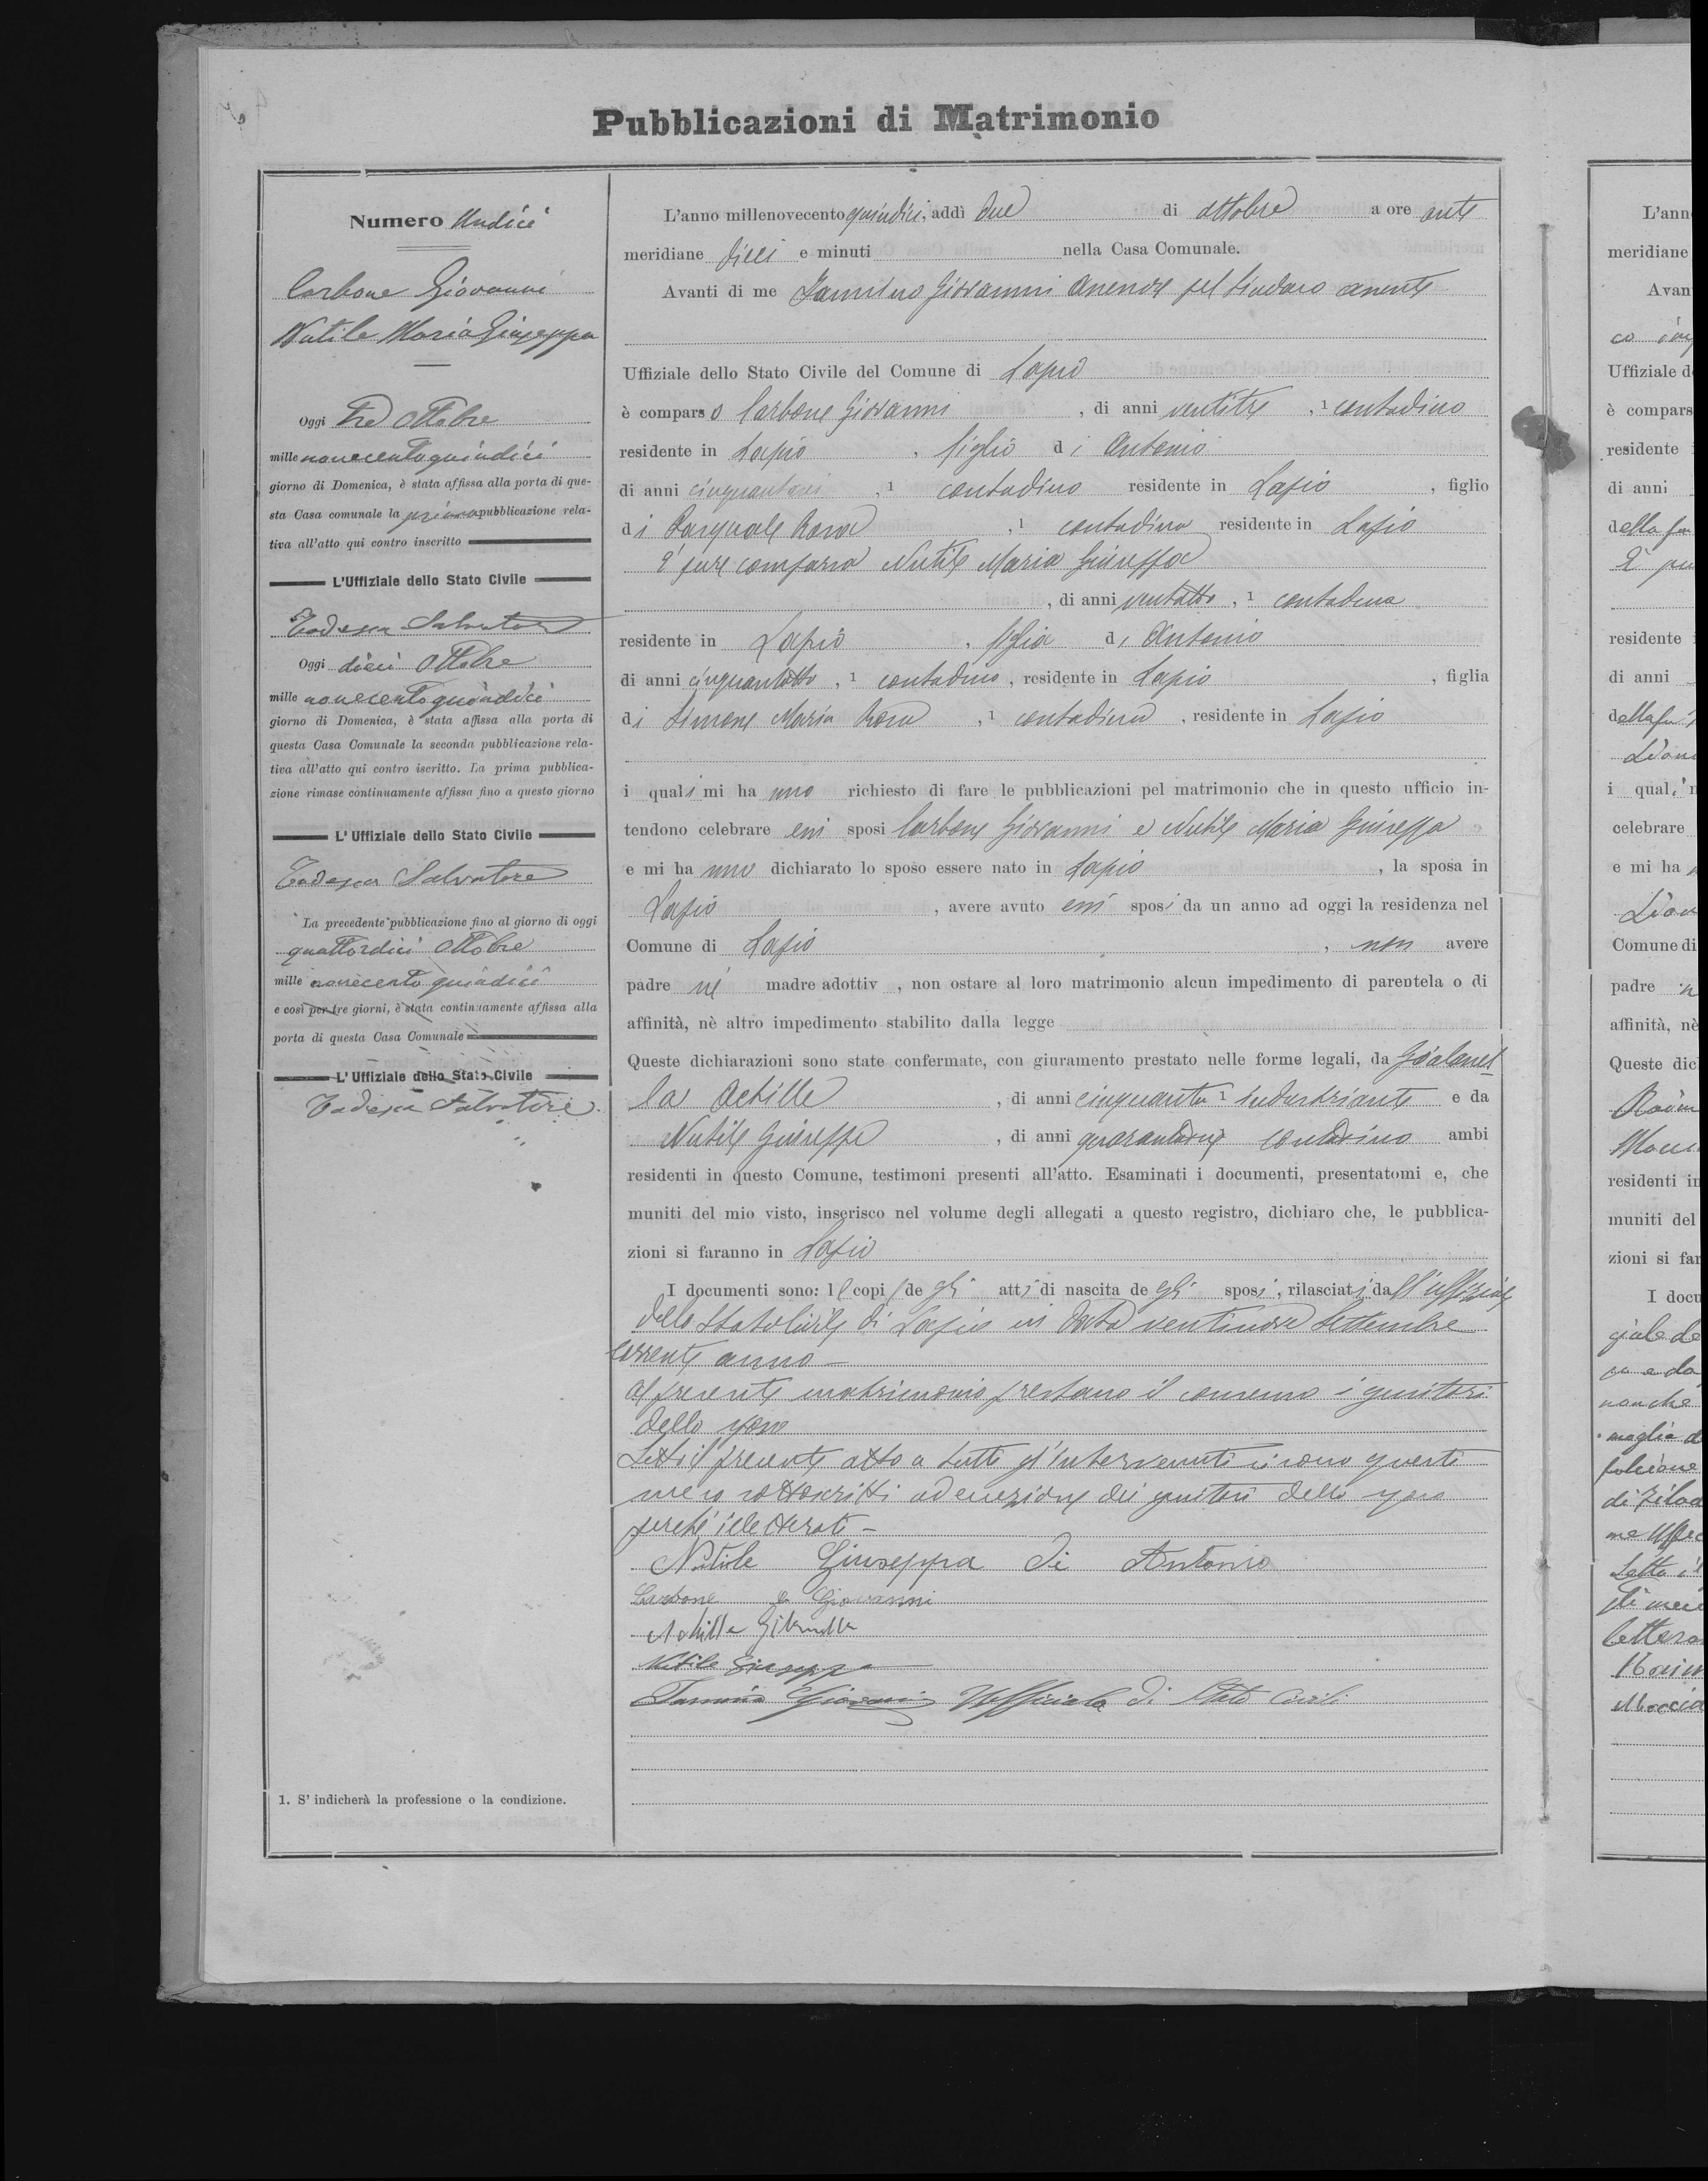 Pubblicazioni di Matrimonio
Numero Undici
Carbone Giovanni
Nutile Maria Giuseppa
Oggi tre Ottobre
mille novecentoquindici
giorno di Domenica, è stata affissa alla porta di que-
sta Casa comunale la prima pubblicazione rela-
tiva all'atto qui contro inscritto
L'Uffiziale dello Stato Civile
Salvatore
Oggi dieci Ottobre
mille novecentoquindici
giorno di Domenica, è stata affissa alla porta di
questa Casa Comunale la seconda pubblicazione rela-
tiva all'atto qui contro iscritto. La prima pubblica-
zione rimase continuamente affissa fino a questo giorno
L'Uffiziale dello Stato Civile
Salvatore
La precedente pubblicazione fino al giorno di oggi
quattordici Ottobre
mille novecento quindici
e così per tre giorni, è stata continuamente affissa alla
porta di questa Casa Comunale
L'Uffiziale dello Stato Civile
Salvatore
1. S' indicherà la professione o la condizione.
L'anno millenovecento quindici, addì due di ottobre a ore anti
meridiane dieci e minuti nella Casa Comunale.
Avanti di me Giovanni pel Sindaco assente
Uffiziale dello Stato Civile del Comune di Lapio
è comparso Carbone Giovanni, di anni ventitre, 1 contadino
residente in Lapio, figlio di Antonio
di anni, 1 contadino residente in Lapio, figlio
di Pasquale Rosa, 1 contadina residente in Lapio
È pure comparsa Nutile Maria Giuseppa
, di anni ventotto, 1 contadina
residente in Lapio, figlia di Antonio
di anni cinquantotto, 1 contadino, residente in Lapio, figlia
di Simone Maria Rosa, 1 contadina, residente in Lapio
i quali mi hanno richiesto di fare le pubblicazioni pel matrimonio che in questo ufficio in-
tendono celebrare essi sposi Carbone Giovanni e Nutile Maria Giuseppa
e mi hanno dichiarato lo sposo essere nato in Lapio, la sposa in
Lapio, avere avuto essi sposi da un anno ad oggi la residenza nel
Comune di Lapio, non avere
padre nè madre adottiv , non ostare al loro matrimonio alcun impedimento di parentela o di
affinità, nè altro impedimento stabilito dalla legge
Queste dichiarazioni sono state confermate, con giuramento prestato nelle forme legali, da Gialanel
la Achille, di anni cinquanta 1 industriante e da
Nutile Giuseppe, di anni quarantadue contadino ambi
residenti in questo Comune, testimoni presenti all'atto. Esaminati i documenti, presentatomi e, che
muniti del mio visto, inserisco nel volume degli allegati a questo registro, dichiaro che, le pubblica-
zioni si faranno in Lapio
I documenti sono: le copie degli atti di nascita degli sposi, rilasciati dall'uffiziale
dello Stato Civile di Lapio in data ventinove Settembre
corrente anno –
Al presente matrimonio prestano il consenso i genitori
dello sposo
Letto il presente atto a tutti gl'intervenuti si sono questi
meco sottoscritti ad eccezione dei genitori dello sposo
perchè illetterati –
Nutile Giuseppa di Antonio
Carbone Giovanni
Achille Gialanella
Nutile Giuseppe
Giovanni Ufficiale di Stato Civile
L'ann
meridiane
Avan
Uffiziale d
è compars
residente
di anni
residente
di anni
i qual
celebrare
e mi ha
Comune di
padre
affinità, nè
Queste dic
residenti in
muniti del
zioni si far
I docu